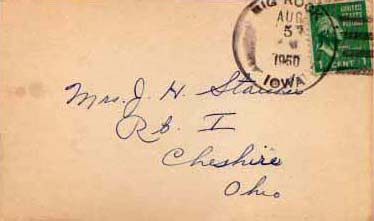 BIG ROCK
AUG
5
1960
IOWA
UNITED
STATES
1 CENT 1
Mrs. J. H.
Rt. I
Cheshire
Ohio